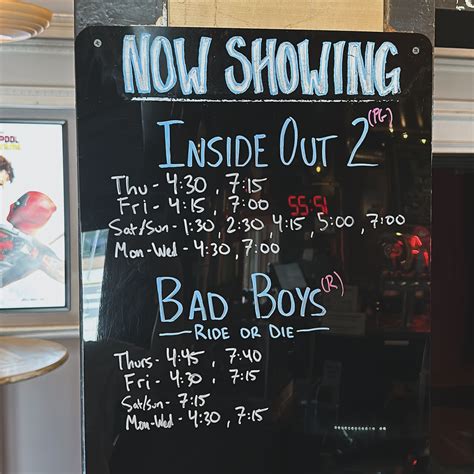 NOW SHOWING
INSIDE OUT 2 (PG)
Thu - 4:30, 7:15
Fri - 4:15, 7:00
Sat/Sun - 1:30, 2:30, 4:15, 5:00, 7:00
Mon-Wed - 4:30, 7:00
BAD BOYS (R)
— RIDE OR DIE —
Thurs - 4:45, 7:40
Fri - 4:30, 7:15
Sat/Sun - 7:15
Mon-Wed - 4:30, 7:15